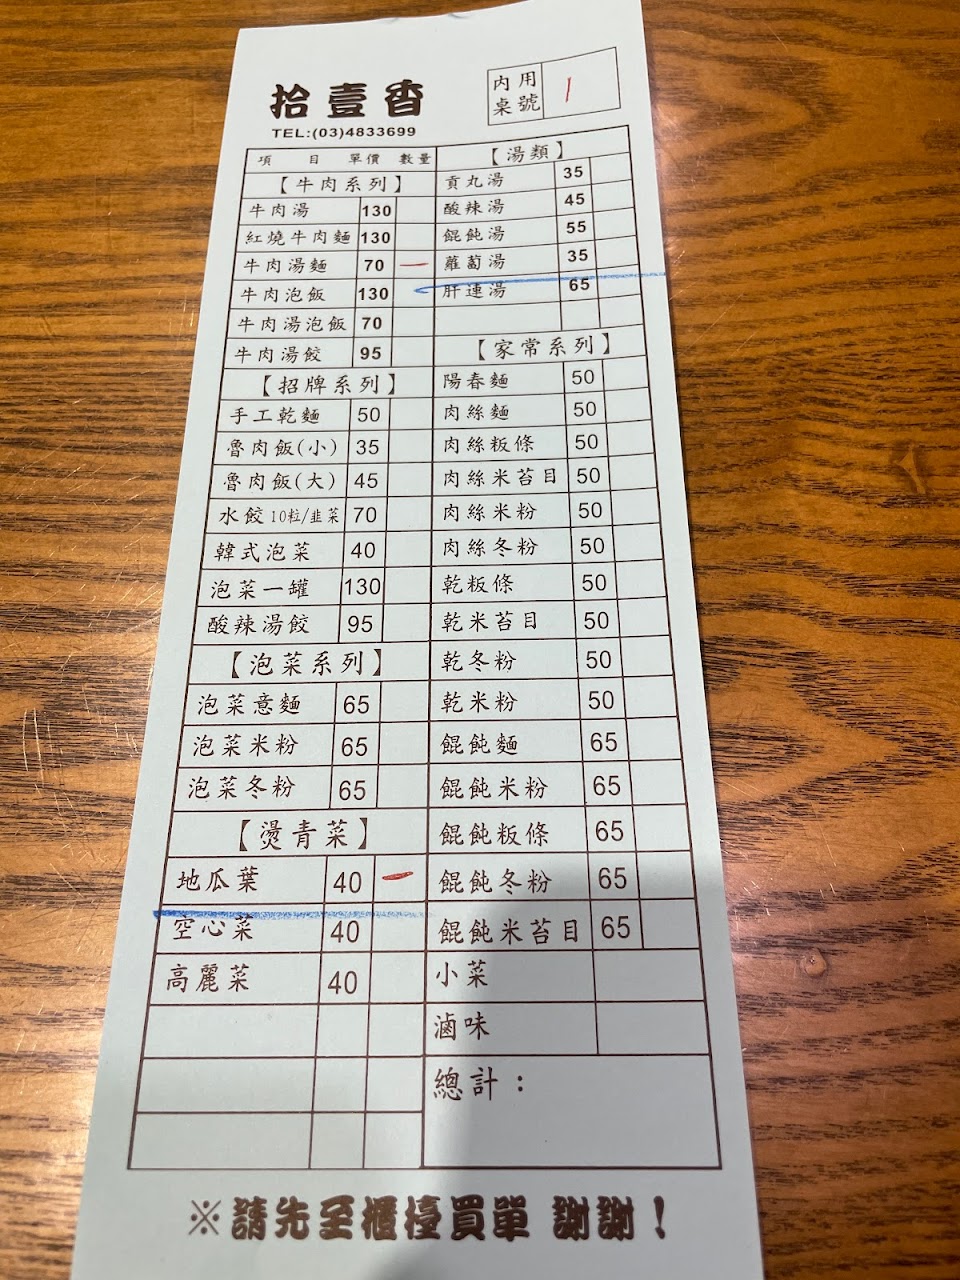 拾壹香
TEL:(03)4833699
內用桌號 1
項目 單價 數量
【牛肉系列】
牛肉湯 130
紅燒牛肉麵 130
牛肉湯麵 70 一
牛肉泡飯 130
牛肉湯泡飯 70
牛肉湯餃 95
【招牌系列】
手工乾麵 50
魯肉飯(小) 35
魯肉飯(大) 45
水餃10粒/韭菜 70
韓式泡菜 40
泡菜一罐 130
酸辣湯餃 95
【泡菜系列】
泡菜意麵 65
泡菜米粉 65
泡菜冬粉 65
【燙青菜】
地瓜葉 40 一
空心菜 40
高麗菜 40
【湯類】
貢丸湯 35
酸辣湯 45
餛飩湯 55
蘿蔔湯 35
肝連湯 65
【家常系列】
陽春麵 50
肉絲麵 50
肉絲粄條 50
肉絲米苔目 50
肉絲米粉 50
肉絲冬粉 50
乾粄條 50
乾米苔目 50
乾冬粉 50
乾米粉 50
餛飩麵 65
餛飩米粉 65
餛飩粄條 65
餛飩冬粉 65
餛飩米苔目 65
小菜
滷味
總計：
※請先至櫃檯買單 謝謝！